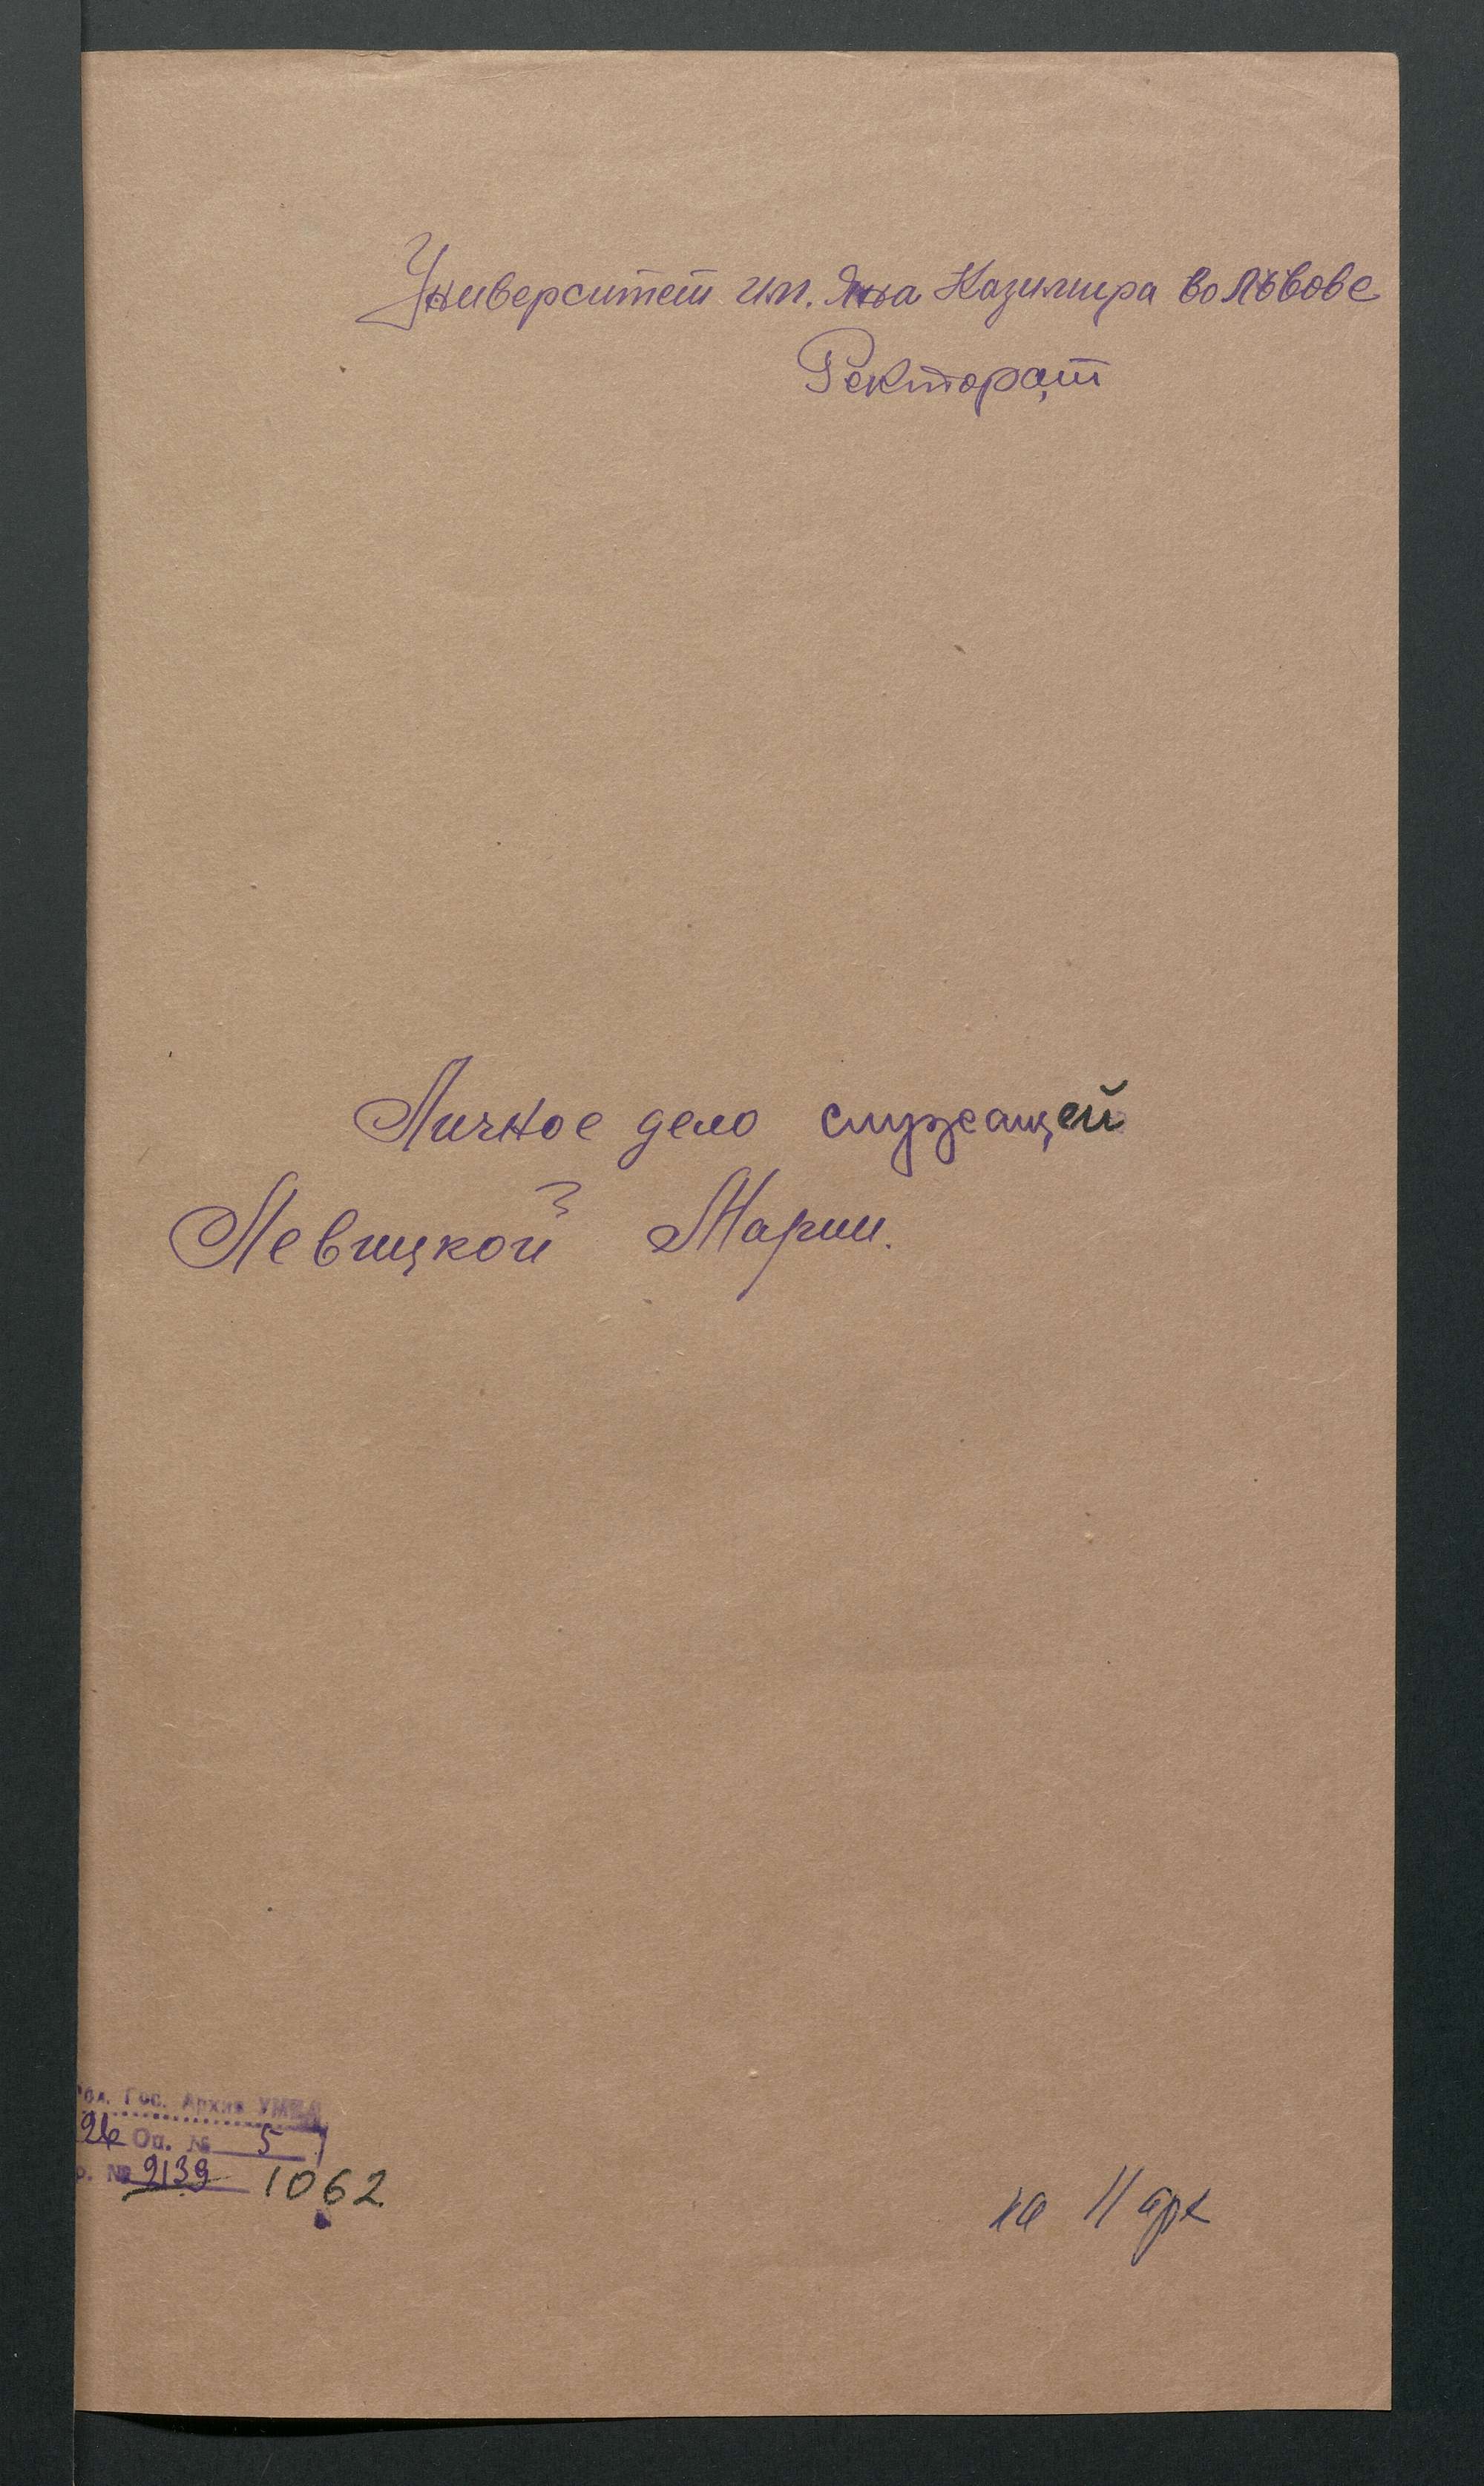 Университет им. Яна Казимира во Львове
Ректорат
Личное дело служащей
Левицкой Марии.
Гос. Архив
26 Оп. № 5
№ 9139 1062
на 11 арк